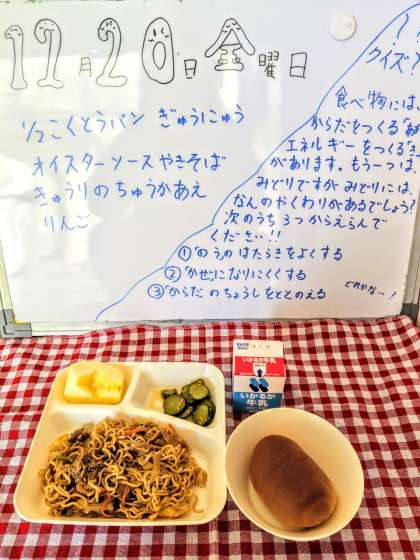 11月20日金曜日
1/2こくとうパン ぎゅうにゅう
オイスターソースやきそば
きゅうりのちゅうかあえ
りんご
クイズ
食べ物には
からだをつくる
エネルギーをつくる
があります。もう一つは
みどりですが みどりには、
なんのやくわりがあるでしょう?
次のうち3つからえらんで
ください!!
①「のうのはたらきをよくする
②「かぜ」になりにくくする
③「からだ」のちょうしをととのえる
どれかな…?
いかるが牛乳
いかるが
牛乳